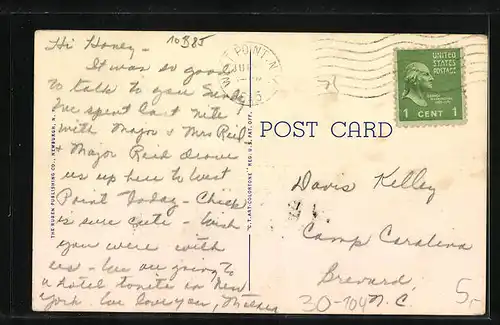 Hi Honey -
10B85
It was so good
to talk to you Sunday
We spent last nite
with Major & Mrs Reid
& Major Reid drove
us up here to West
Point Today - Chick
is sure cute - Wish
you were with
us - We are going to
a hotel tonite in New
York. We love you, Mother
THE RUBEN PUBLISHING CO., NEWBURGH, N.
"C.T. ART-COLORTONE" REG. U.S. PAT. OFF.
POINT N.Y.
UNITED
STATES
POSTAGE
1 CENT 1
POST CARD
Davis Kelley
Camp Carolina
Brevard,
N.C
30-104
5,-